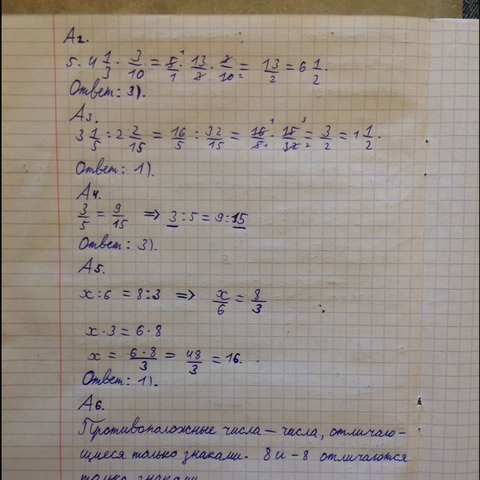 А2.
5 · 4 1/3 · 3/10 = 5/1 · 13/3 · 3/10 = 13/2 = 6 1/2.
Ответ: 3).
А3.
3 1/5 : 2 2/15 = 16/5 : 32/15 = 16/5 · 15/32 = 3/2 = 1 1/2.
Ответ: 1).
А4.
3/5 = 9/15 ⇒ 3 : 5 = 9 : 15
Ответ: 3).
А5.
x : 6 = 8 : 3 ⇒ x/6 = 8/3
x · 3 = 6 · 8
x = 6·8/3 = 48/3 = 16.
Ответ: 1).
А6.
Противоположные числа — числа, отличаю-
щиеся только знаками. 8 и -8 отличаются
только знаками